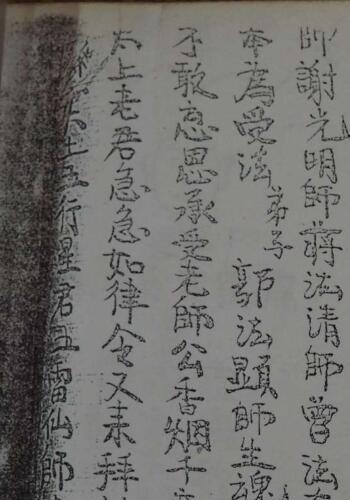 師謝光明師蔣法清師曾法
本為受法弟子郭法顕師生魂
不敢忘恩承受老師公香烟千
太上老君急急如律令又来拜
五行星君五雷仙師